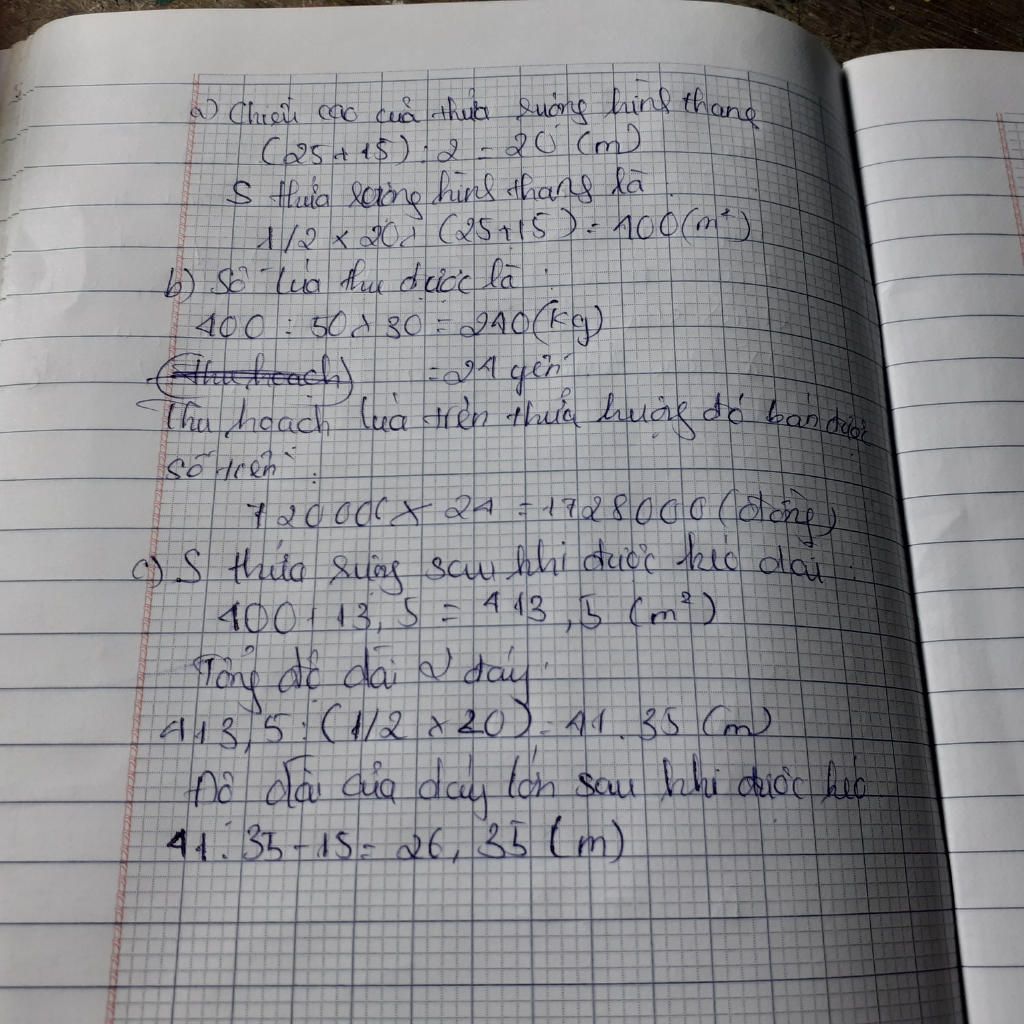 a) Chiều cao của thửa ruộng hình thang
(25+15) : 2 = 20 (m)
S thửa ruộng hình thang là
1/2 x 20 x (25+15) = 400 (m²)
b) Số lúa thu được là :
400 : 50 x 30 = 240 (kg)
= 24 yến
Thu hoạch lúa trên thửa ruộng đó bán được
số tiền :
72000 x 24 = 1728000 (đồng)
c) S thửa ruộng sau khi được kéo dài
400 + 13,5 = 413,5 (m²)
Tổng độ dài 2 đáy :
413,5 : (1/2 x 20) = 41.35 (m)
Độ dài của đáy lớn sau khi được kéo
41.35 - 15 = 26,35 (m)